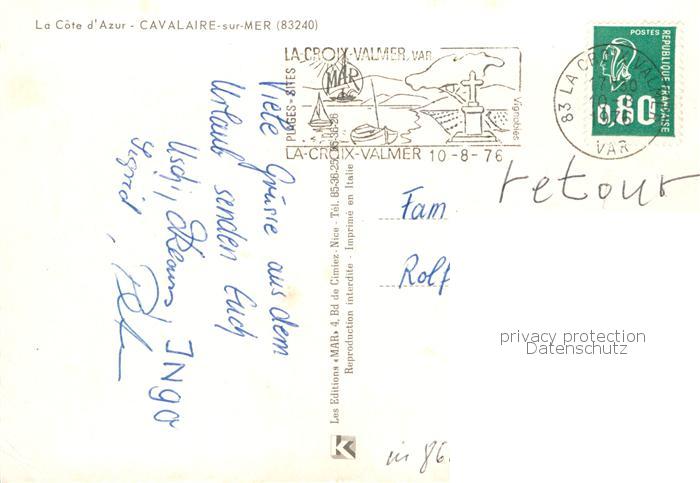 La Côte d'Azur - CAVALAIRE-sur-MER (83240)
LA-CROIX-VALMER. VAR
PLAGES - SITES
MAR
Vignobles
LA-CROIX-VALMER 10-8-76
83 LA C
VAR
POSTES
REPUBLIQUE FRANÇAISE
0,80
Viele Grüsse aus dem
Urlaub senden Euch
Uschi, Klaus, INGO
Sigrid,
Les Editions «MAR» 4, Bd de Cimiez - Nice - Tél. 85-36-25
Reproduction interdite - Imprimé en Italie
K
retour
Fam
Rolf
privacy protection
Datenschutz
in 86.